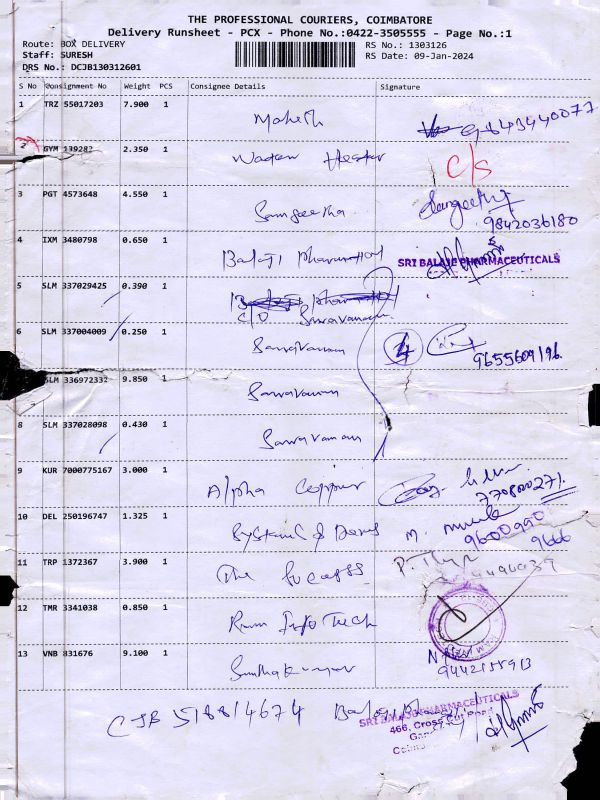 THE PROFESSIONAL COURIERS, COIMBATORE
Delivery Runsheet - PCX - Phone No.:0422-3505555 - Page No.:1
Route: BOX DELIVERY RS No.: 1303126
Staff: SURESH RS Date: 09-Jan-2024
DRS No.: DCJB130312601
S No Consignment No Weight PCS Consignee Details Signature
1 TRZ 55017203 7.900 1 Mahesh 9843440077
2 GYM 139282 2.350 1 C/s
3 PGT 4573648 4.550 1 Sangeetha Sangeetha
9842036180
4 IXM 3480798 0.650 1 Balaji SRI BALAJI PHARMACEUTICALS
5 SLM 337029425 0.390 1
C/O Saravanan
6 SLM 337004009 0.250 1 Saravanan 4
9655609196
SLM 336972332 9.850 1 Saravanan
8 SLM 337028098 0.430 1 Saravanan
9 KUR 7000775167 3.000 1 Alpha
10 DEL 250196747 1.325 1 M.
9600990
9666
11 TRP 1372367 3.900 1 The
12 TMR 3341038 0.850 1 Ram Info Tech
13 VNB 831676 9.100 1
CJB 518814674 Balaji
SRI BALAJI PHARMACEUTICALS
466, Cross Cut Road